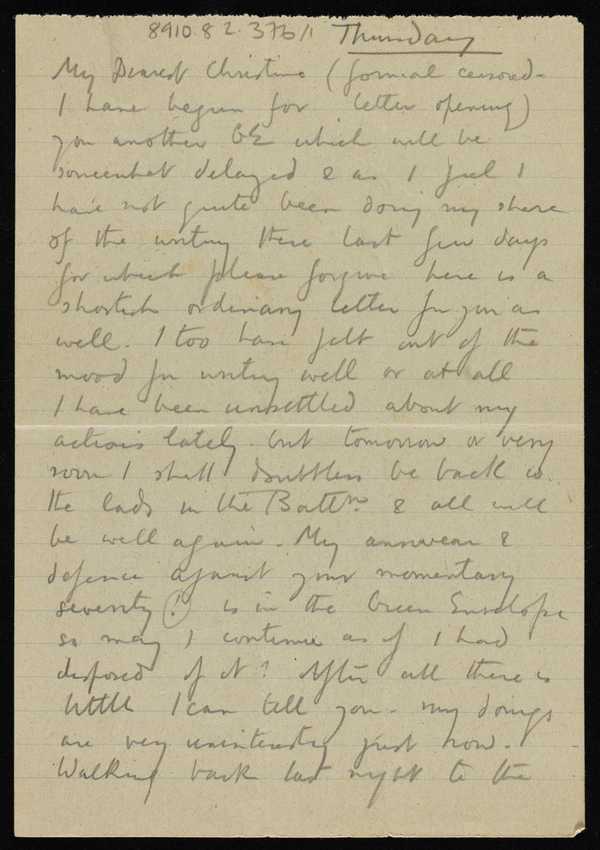 8910.82.376/1 Thursday
My Dearest Christine (formal censored-
I have begun for letter opening)
you another GE which will be
somewhat delayed & as I feel I
have not quite been doing my share
of the writing these last few days
for which please forgive here is a
shortish ordinary letter for you as
well. I too have felt out of the
mood for writing well or at all
I have been unsettled about my
actions lately but tomorrow or very
soon I shall doubtless be back w.
the lads in the Battn. & all will
be well again. My answer &
defence against your momentary
severity (!) is in the Green Envelope
so may I continue as if I had
disposed of it? After all there is
little I can tell you - my doings
are very uninteresting just now.
Walking back last night to the